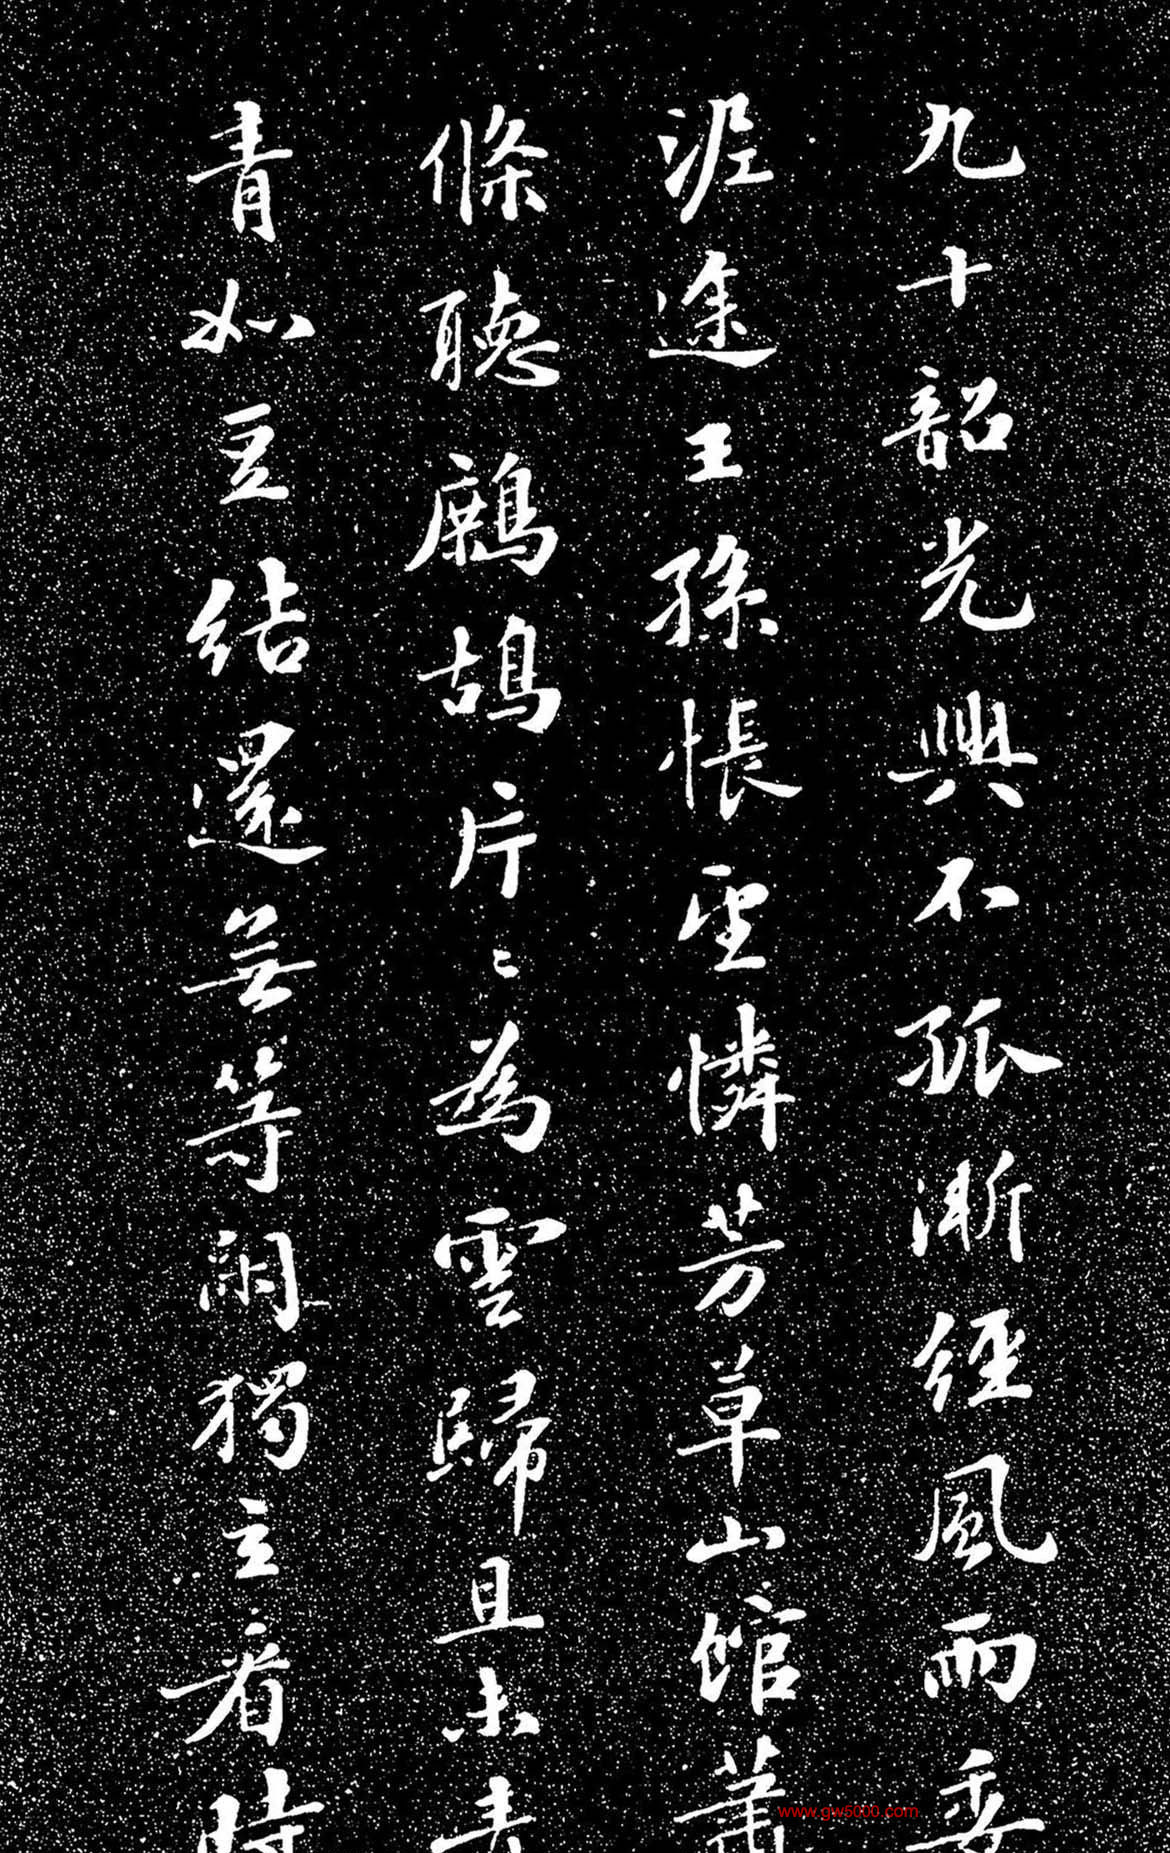 九十韶光興不孤漸經風雨委
泥途王孫悵望憐芳草山館蕭
條聽鷓鴣片〻為雲歸且未青
青如豆結還無等閑獨立看時
www.gw5000.com